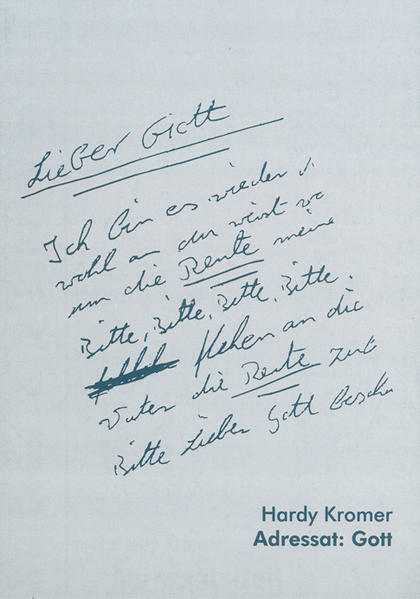 Lieber Gott
Ich bin es wieder
wohl an du weist wo
um die Rente meine
Bitte, Bitte, Bitte, Bitte.
flehen an die
Vater die Rente zu
Bitte Lieber Gott besche
Hardy Kromer
Adressat: Gott